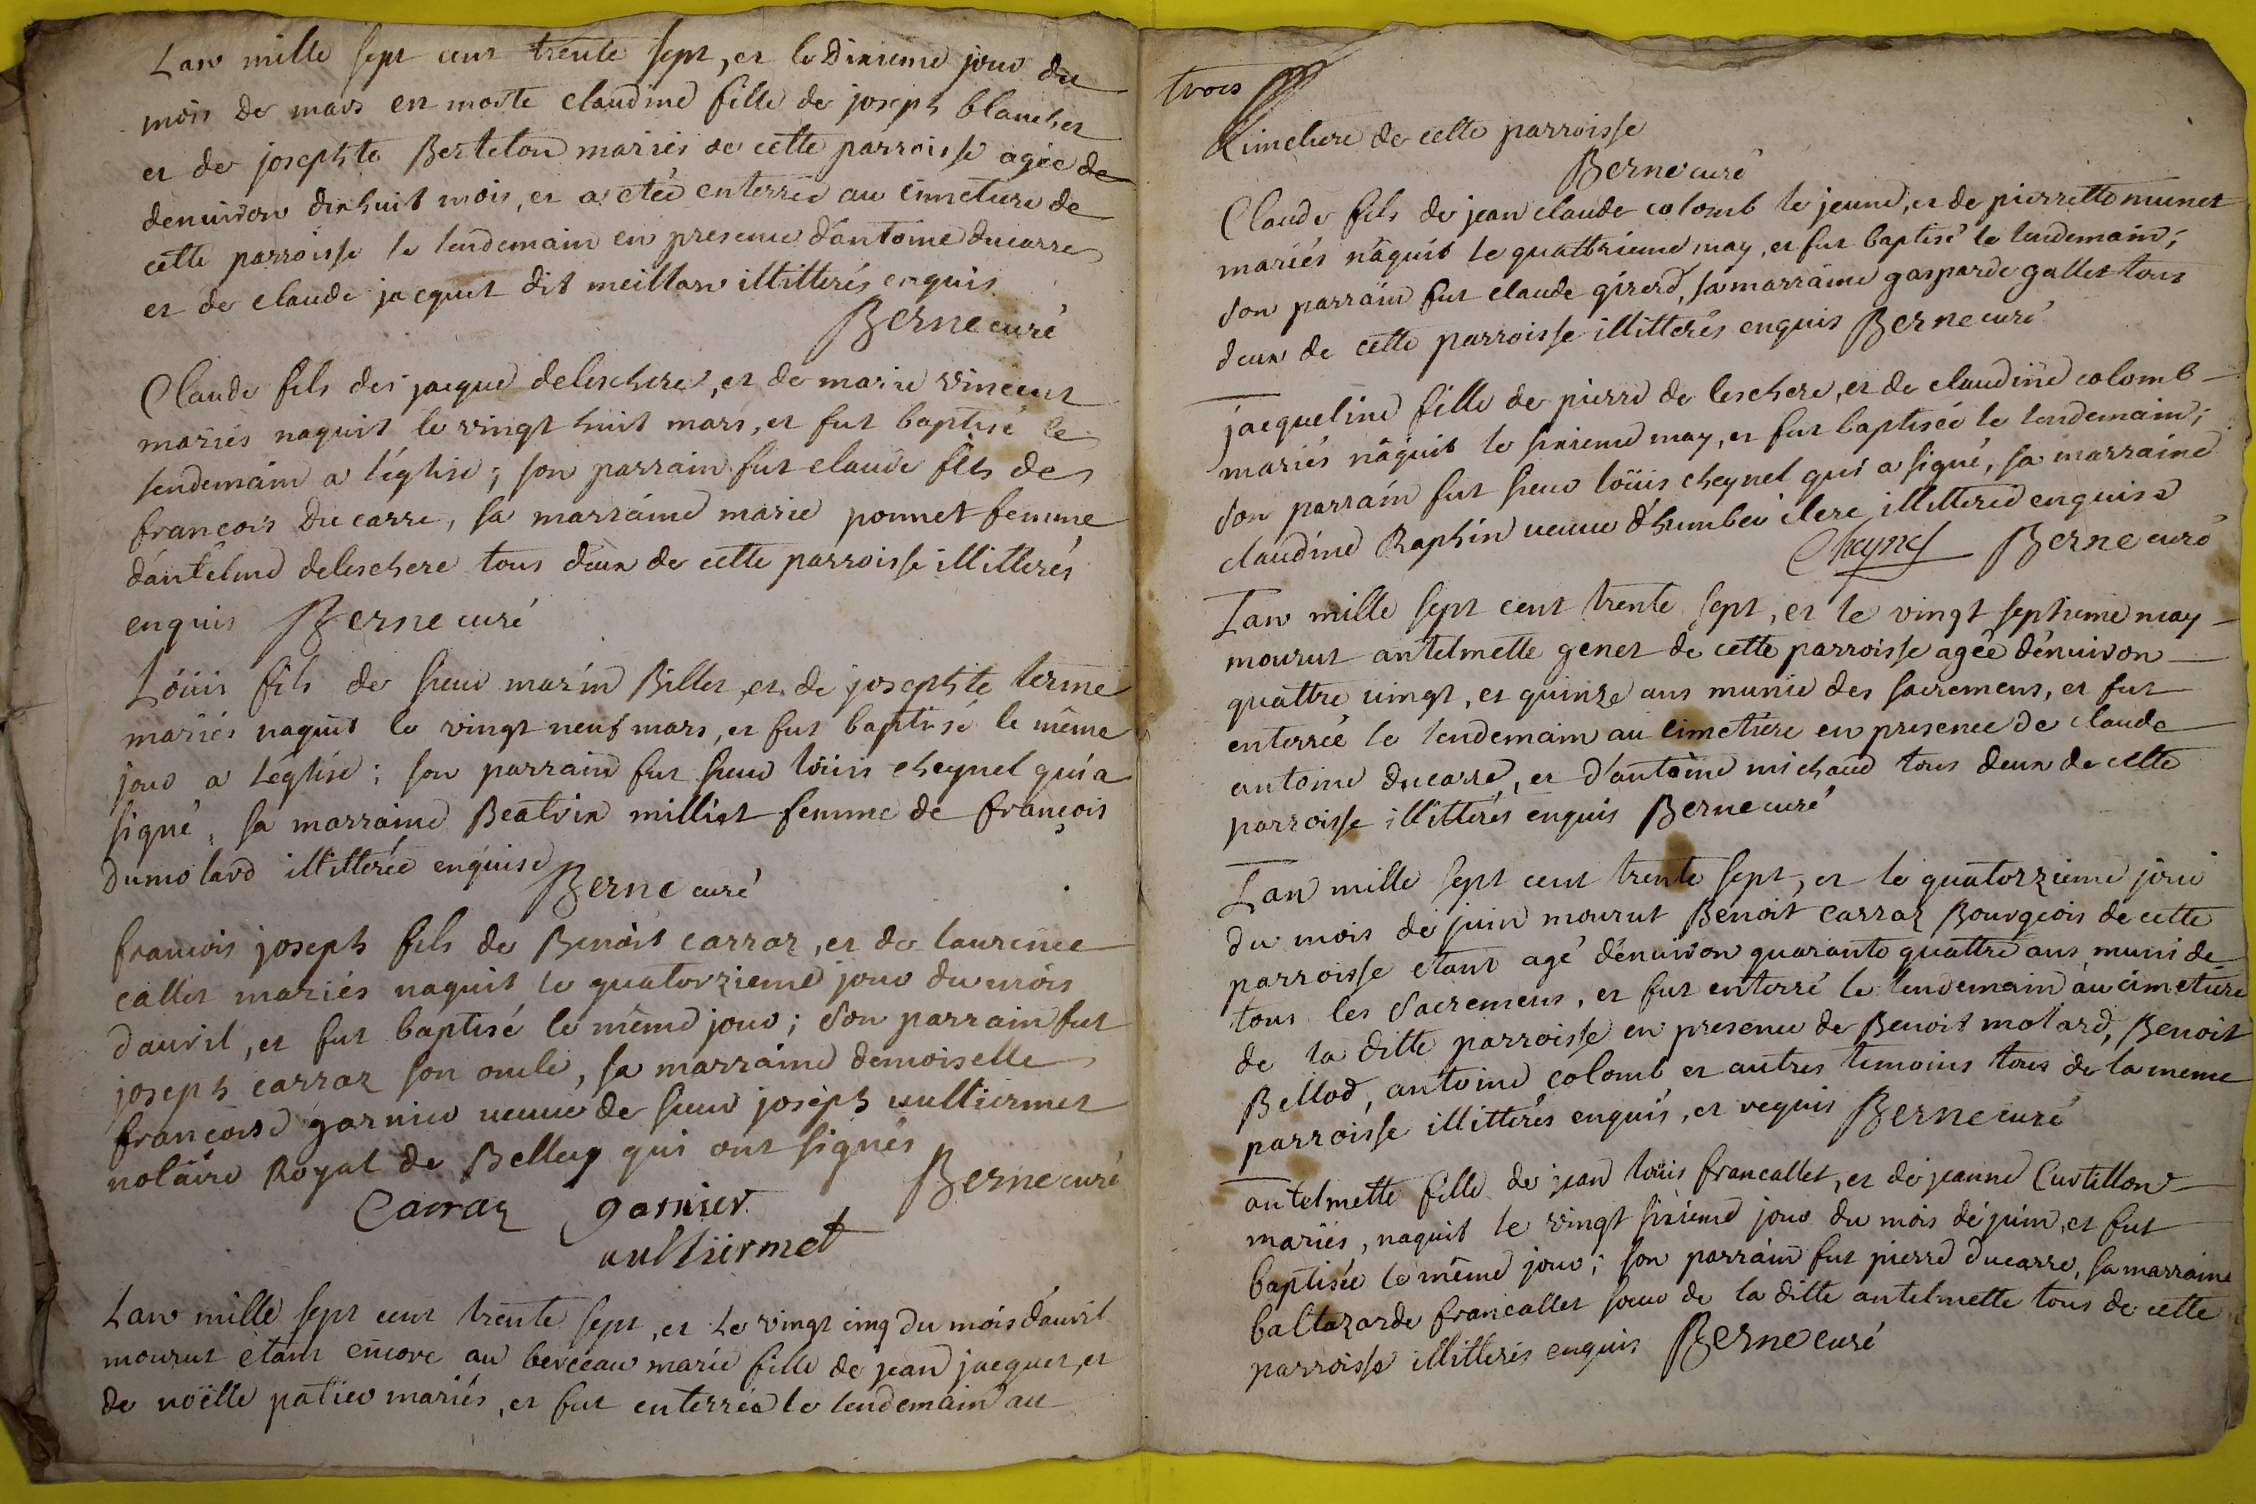 Lan mille sept cent trente sept, et le Dixieme jour du
mois de mars en morte claudine fille de joseph blanchet
et de josephte Berteton mariés de cette parroisse agée de
denuiron dixhuit mois, et a eteé enterrée au cimetiere de
cette parroisse le lendemain en presence d'antoine ducarre
et de claude jacquet dit meillan illitterés enquis
Berne curé
Claude fils dei jacque deleschere, et de marie vincent
mariés naquit le vingt huit mars, et fut baptisé le
lendemain a l'église; son parrain fut claude fils de
francois Ducarre, sa marraine marie ponnet femme
d'antelme deleschere tous deux de cette parroisse illitterés
enquis Berne curé
Löuis fils de sieur marin Billet, et de josephte terme
mariés naquit le vingt neuf mars, et fut baptisé le même
jour a L'église; son parrain fut sieur löuis cheynel qui a
signé, sa marraine Beatrix milliet femme de françois
dumolard illitterée enquise
Berne curé
francois joseph fils de Benoit carraz, et de laurence
callet mariés naquit le quatorzieme jour du mois
d'auril, et fut baptisé le même jour; son parrain fut
joseph carraz son oncle, sa marraine demoiselle
francoise garnier ueuue de sieur joseph uulliermet
notaire Royal de Belley qui ont signés
Berne curé
Carraz garnier
uulliermet
Lan mille sept cent trente sept, et Le vingt cinq du mois d'auril
mourut étant encore au berceau marie fille de jean jacquet, et
de noëlle patier mariés, et fut enterrée le lendemain au
trois
Cimetiere de cette parroisse
Berne curé
Claude fils de jean claude colomb le jeune, et de pierrette munet
mariés naquit le quattrieme may, et fut baptisé le lendemain;
son parrain fut claude girerd, sa marraine gasparde gallet tous
deux de cette parroisse illitterés enquis Berne curé
jacqueline fille de pierre de leschere, et de claudine colomb
mariés naquit le sixieme may, et fut baptiseé le lendemain;
son parrain fut sieur löuis cheynel qui a signé, sa marraine
claudine Raphin ueuue d'humber clerc illitterée enquise
Cheynel Berne curé
Lan mille sept cent trente sept, et le vingt septieme may
mourut antelmette genet de cette parroisse agée d'enuiron
quattre uingt, et quinze ans munie des sacremens, et fut
enterrée le lendemain au cimetiere en presence de claude
antoine ducarre, et d'antoine michaud tous deux de cette
parroisse illitterés enquis Berne curé
Lan mille sept cent trente sept, et le quatorzieme jour
du mois de juin mourut Benoit carraz Bourgeois de cette
parroisse etant agé d'enuiron quarante quattre ans muni de
tous les sacremens, et fut enterré le lendemain au cimetiere
de la ditte parroisse en presence de Benoit molard, Benoit
Bellod, antoine colomb et autres temoins tous de la meme
parroisse illitterés enquis, et requis Berne curé
antelmette fille de jean loüis francallet, et de jeanne Curtillon
mariés, naquit le vingt sixieme jour du mois de juin, et fut
baptisée le même jour; son parrain fut pierre ducarre, sa marraine
baltazarde francallet soeur de la ditte antelmette tous de cette
parroisse illitterés enquis Berne curé